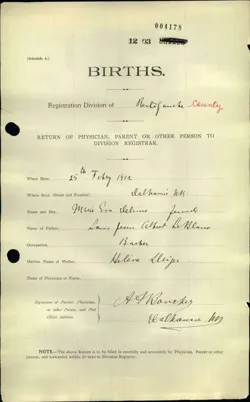 004178
12 03
(Schedule A.)
BIRTHS.
Registration Division of Restigouche County
RETURN OF PHYSICIAN, PARENT OR OTHER PERSON TO
DIVISION REGISTRAR.
When Born 25th Feby 1912
Where Born (Street and Number) Dalhousie NB
Name and Sex Marie Eva Delima Female
Name of Father, Louis Jean Albert LeBlanc
Occupation, Barber
Maiden Name of Mother, Helena
Name of Physician or Nurse,
Signature of Parent, Physician,
or other Person, and Post
Office Address.
Dalhousie NB
NOTE.—The above Return is to be filled in carefully and accurately by Physician, Parent or other
person, and forwarded within 30 days to Division Registrar.